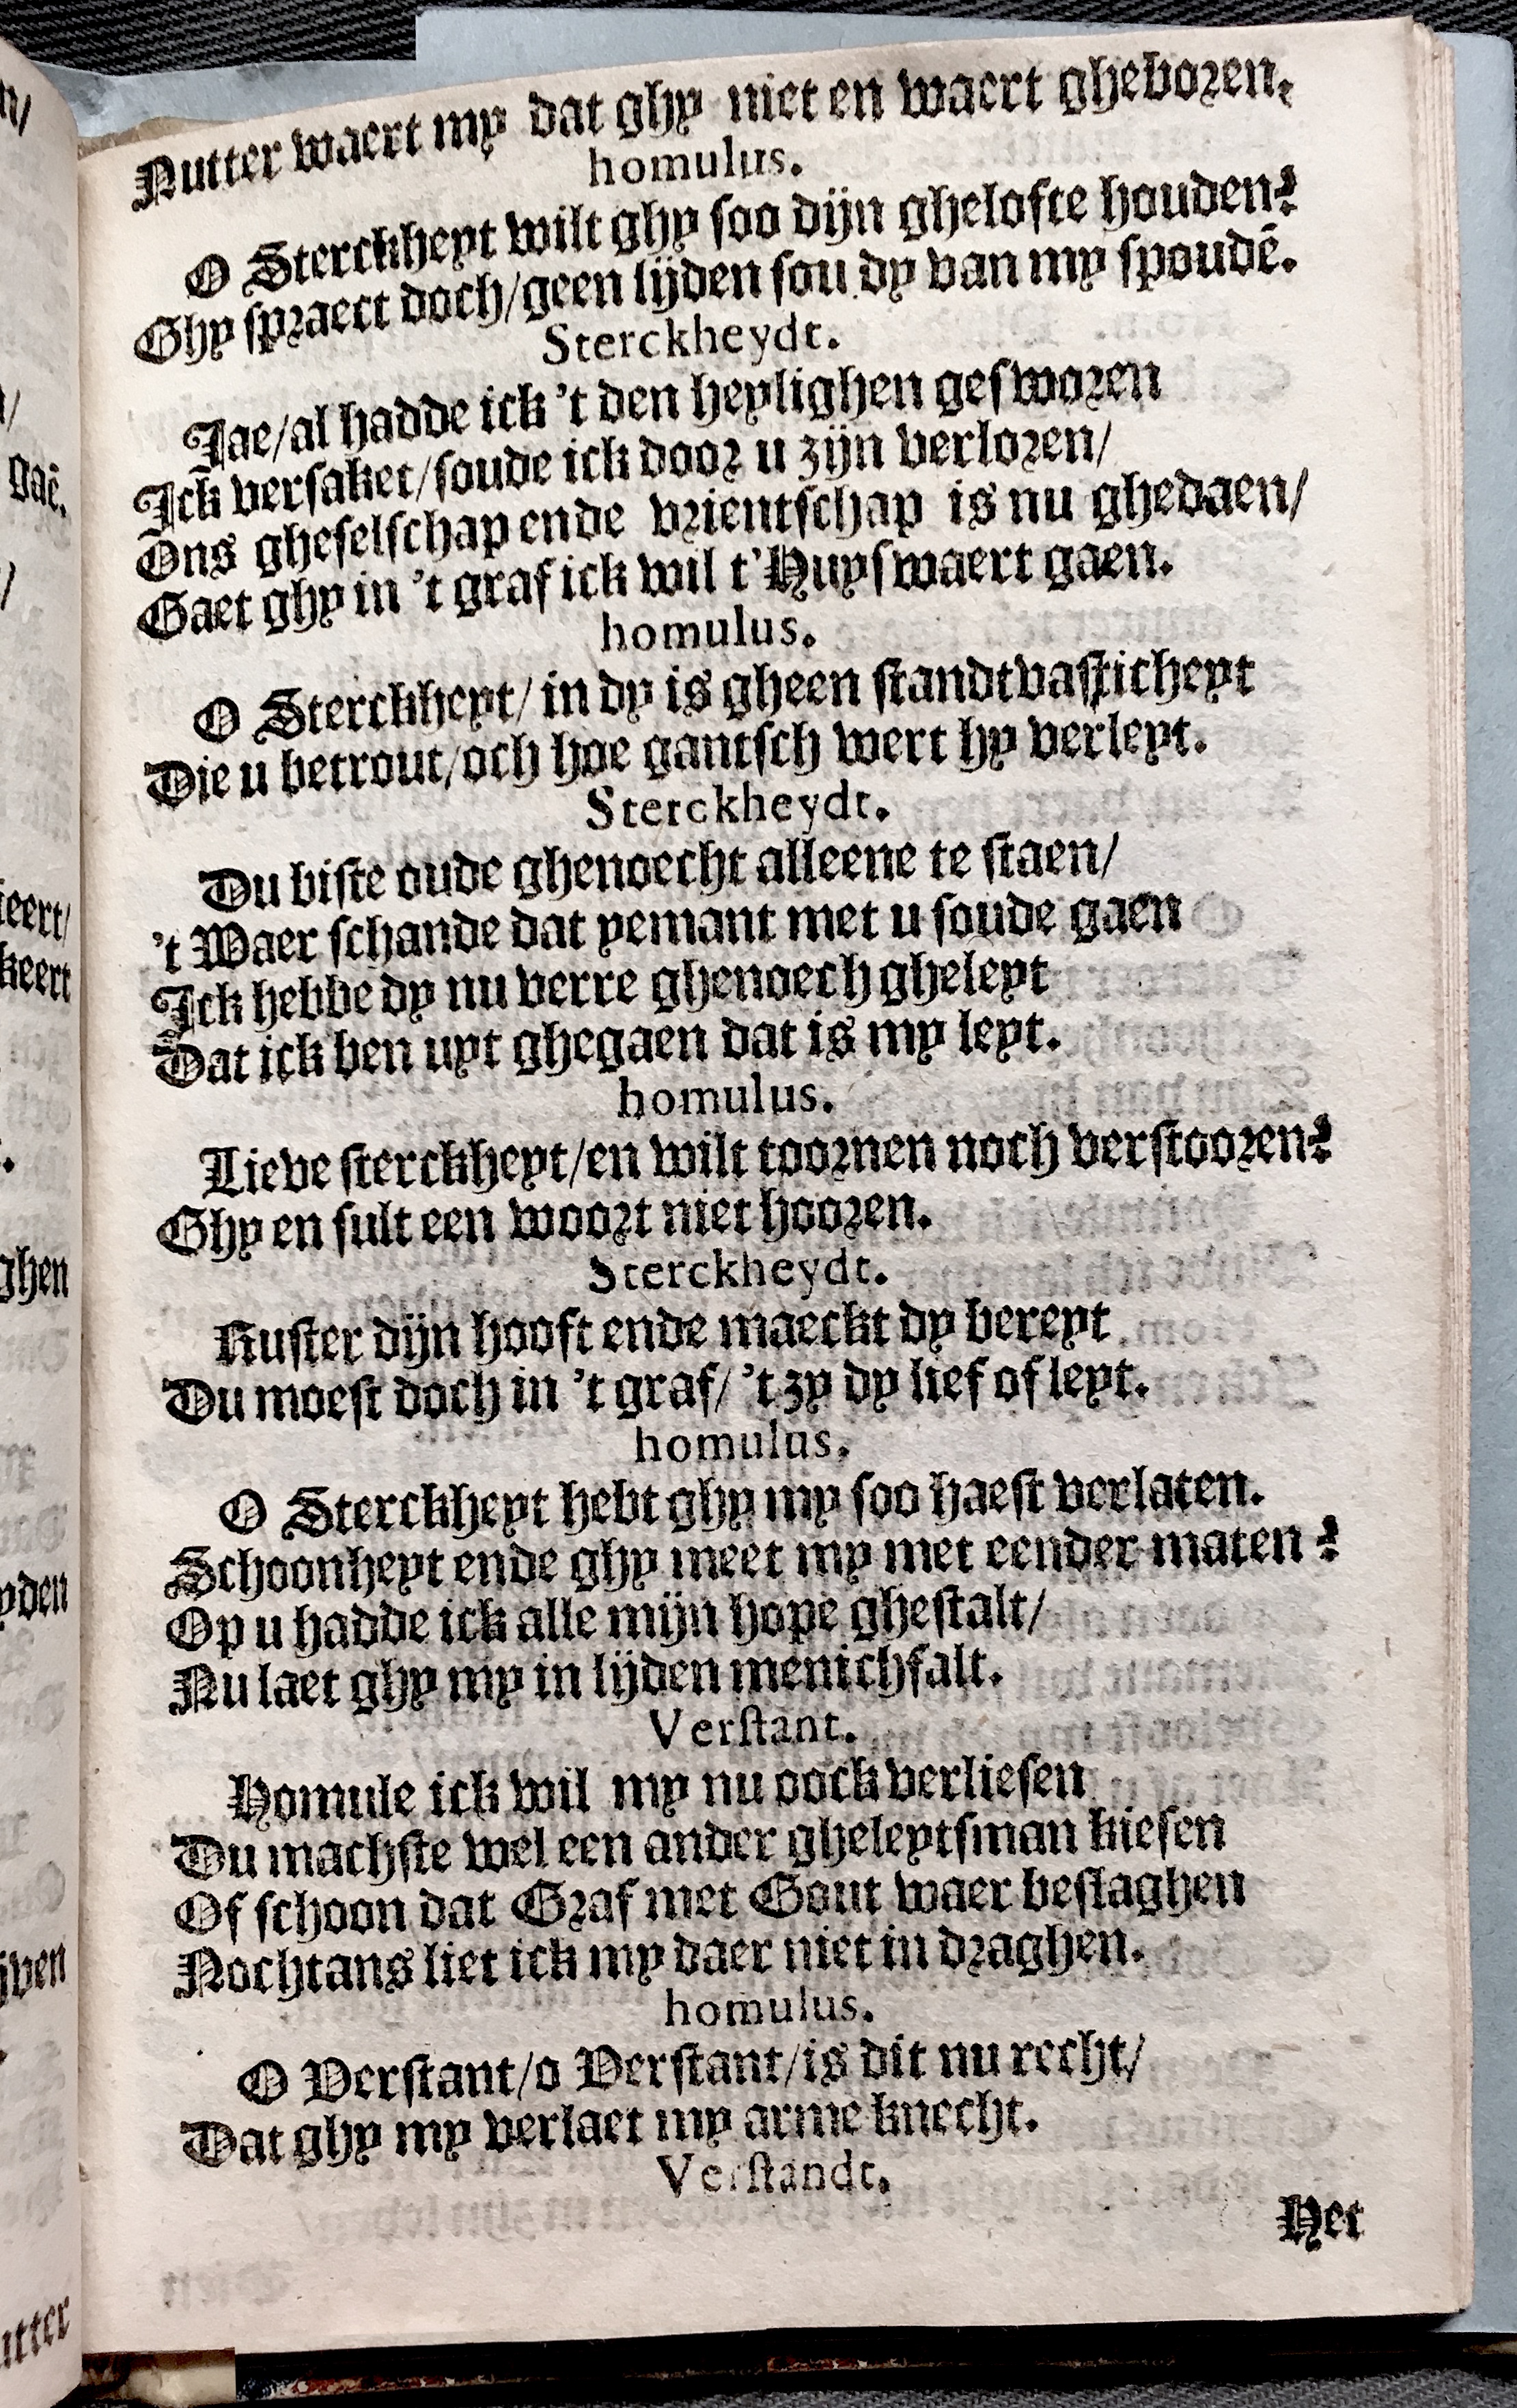 Nutter waert my dat ghy niet en waert gheboren.
homulus.
O Sterckheyt wilt ghy soo dijn ghelofte houden?
Ghy spraect doch/geen lijden sou dy van my spoudē.
Sterckheydt.
Jae/al hadde ick 't den heylighen gesworen
Ick versaket/soude ick door u zijn verloren/
Ons gheselschap ende vrientschap is nu ghedaen/
Gaet ghy in 't graf ick wil t'Huyswaert gaen.
homulus.
O Sterckheyt/in dy is gheen standtvasticheyt
Die u betrout/och hoe gantsch wert hy verleyt.
Sterckheydt.
Du biste oude ghenoecht alleene te staen/
't Waer schande dat yemant met u soude gaen
Ick hebbe dy nu verre ghenoech gheleyt
Dat ick ben uyt ghegaen dat is my leyt.
homulus.
Lieve sterckheyt/en wilt toornen noch verstooren?
Ghy en sult een woort niet hooren.
Sterckheydt.
Kuster dijn hooft ende maeckt dy bereyt
Du moest doch in 't graf/'t zy dy lief of leyt.
homulus.
O Sterckheyt hebt ghy my soo haest verlaten.
Schoonheyt ende ghy meet my met eender maten?
Op u hadde ick alle mijn hope ghestalt/
Nu laet ghy my in lijden menichfalt.
Verstant.
Homule ick wil my nu oock verliesen
Du machste wel een ander gheleytsman kiesen
Of schoon dat Graf met Gout waer beslaghen
Nochtans liet ick my daer niet in draghen.
homulus.
O Verstant/o Verstant/is dit nu recht/
Dat ghy my verlaet my arme knecht.
Verstandt.
Het